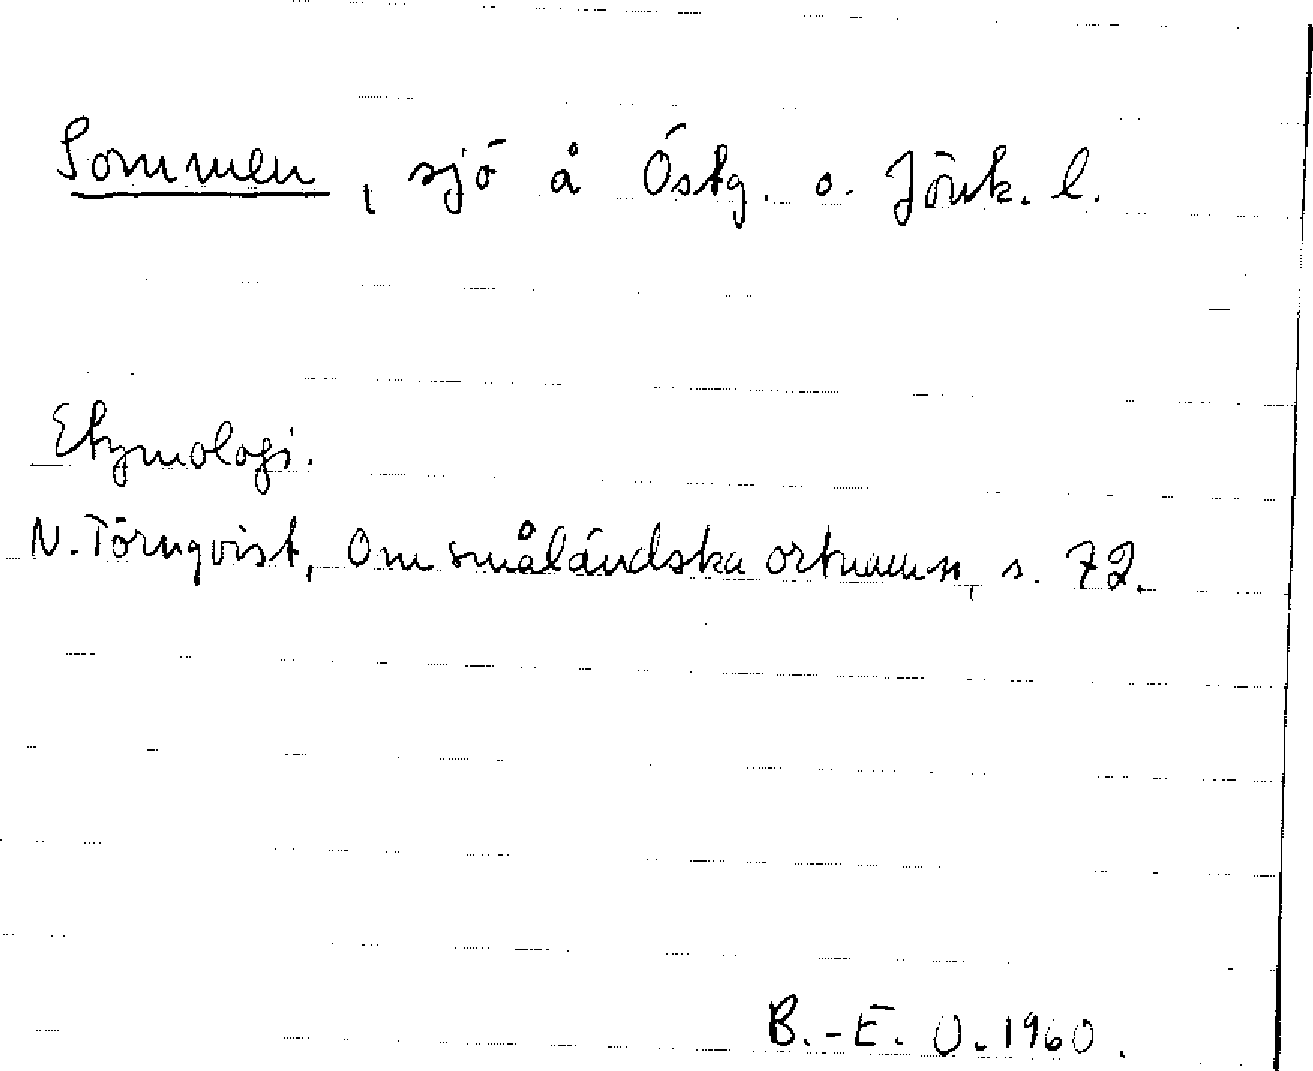 Sommen, sjö å Östg. o. Jönk. l.
Etymologi.
N. Törnqvist, Om småländska ortnamn, s. 72.
B.-E. O. 1960.